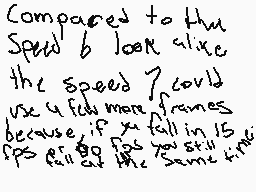 Compared to the
Speed 6 look alike
the speed 7 could
use a few more frames
because, if you fall in 15
fps or 30 fps you still
fall at the same time.